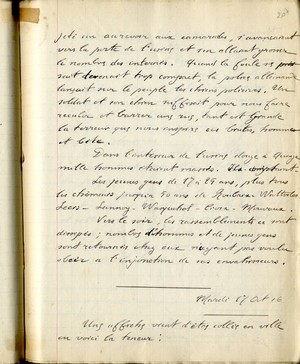 jeté un au revoir aux camarades, s'avançaient
vers la porte de l'usine et s'en allaient grossir
le nombre des internés. Quand la foule se pres
sait devenait trop compact, la police allemande
lançait sur le peuple les chiens policiers. Un
soldat et son chien suffisait pour nous faire
reculer et barrer une rue, tant est grande
la terreur que nous inspire ces brutes, homme
et bête.
Dans l'intérieur de l'usine douze à quinze
mille hommes étaient massés.
Les jeunes gens de 17 à 25 ans, plus tous
les chômeurs jusqu'à 50 ans de Roubaix - Wattrelos
Leers - Lannoy - Wasquehal - Croix - Mouvaux.
Vers le soir, les rassemblements se sont
dissipés; nombre d'hommes et de jeunes gens
sont retournés chez eux n'ayant pas voulu
obéir à l'injonction de nos envahisseurs.
Mardi 17 Oct 16
Une affiche vient d'être collée en ville
en voici la teneur: